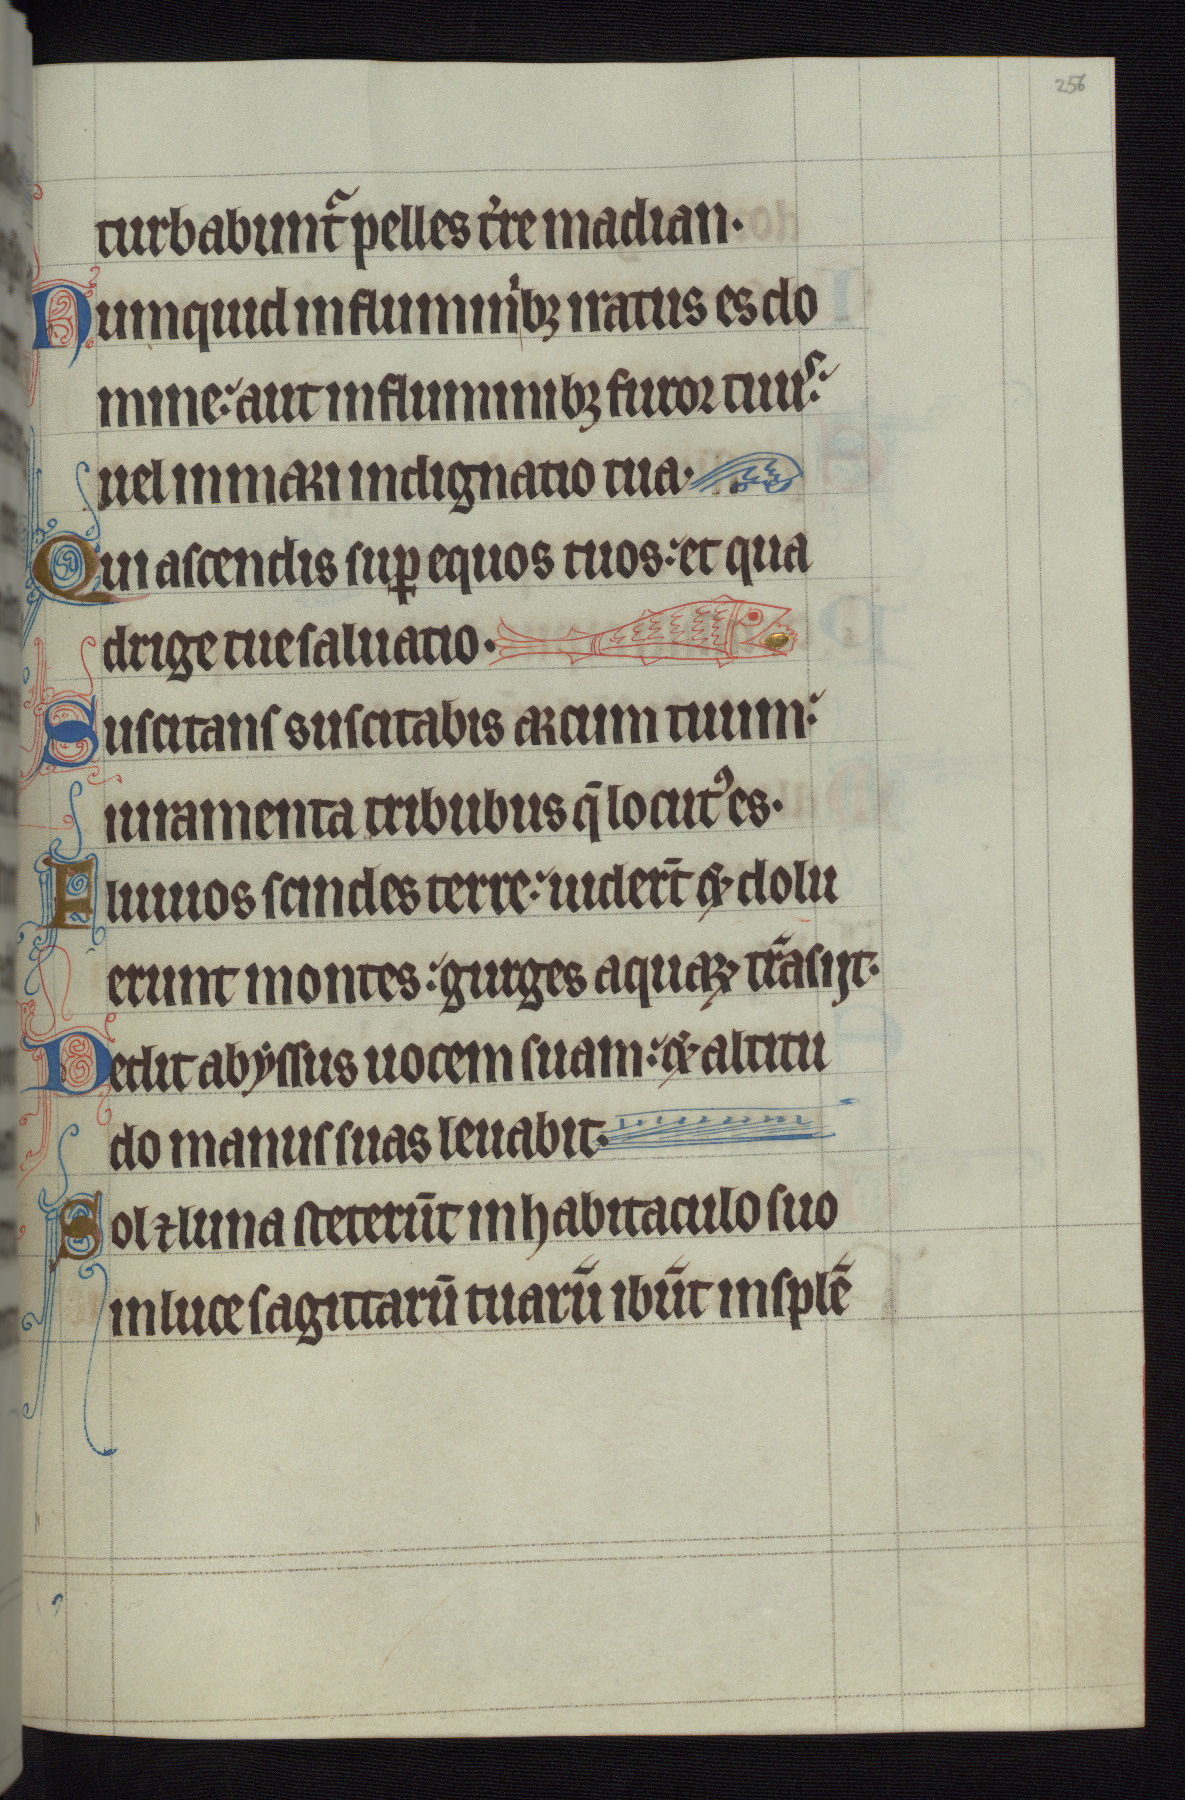 256
turbabuntᷓ pelles t̾re madian·
Numquid in fluminibꝫ iratus es do
mine: aut in fluminibꝫ furor tuus:
uel in mari indignatio tua·
Qui ascendis suꝑ equos tuos: et qua
drige tue saluatio·
Suscitans suscitabis arcum tuum:
iuramenta tribubus q̄ locutꝰ es·
Fluuios scindes terre: uider̄t & dolu
erunt montes: gurges aquaꝝ tr̄asijt·
Dedit abyssus uocem suam: & altitu
do manus suas leuabit·
Sol ⁊ luna steterūt in habitaculo suo
in luce sagittarū tuarū ibūt in splē